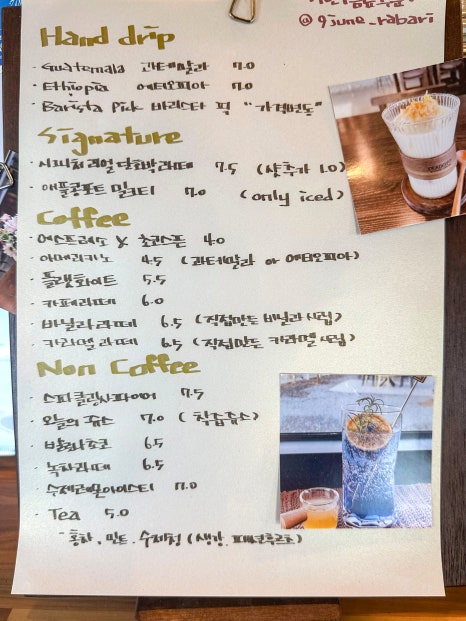 @ 9june_rabari
Hand drip
· Guatemala 과테말라 7.0
· Ethiopia 에티오피아 7.0
· Barista Pick 바리스타 픽 "가격변동"
Signature
· 시그니처 리얼 단호박라떼 7.5 (샷추가 1.0)
· 애플콤포트 밀크티 7.0 (only iced)
Coffee
· 에스프레소 & 초코스푼 4.0
· 아메리카노 4.5 (과테말라 or 에티오피아)
· 플랫화이트 5.5
· 카페라떼 6.0
· 바닐라라떼 6.5 (직접만든 바닐라시럽)
· 카라멜라떼 6.5 (직접만든 카라멜시럽)
Non Coffee
· 스파클링사파이어 7.5
· 오늘의 쥬스 7.0 (착즙쥬스)
· 발로나쵸코 6.5
· 녹차라떼 6.5
· 수제레몬아이스티 7.0
· Tea 5.0
- 홍차, 민트, 수제청 (생강, 패션후르츠)